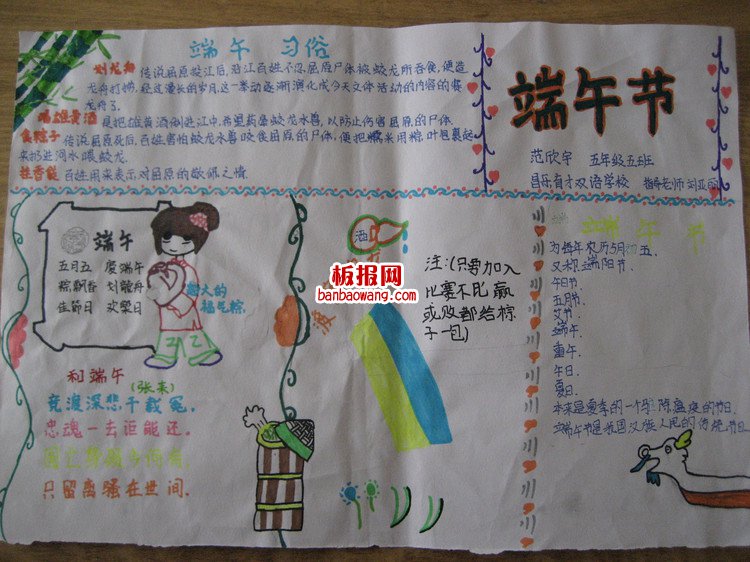 端午 习俗
划龙舟 传说屈原投江后,沿江百姓不忍屈原尸体被蛟龙所吞食,便造
龙舟打捞,经过漫长的岁月,这一举动逐渐演化成今天文体活动的内容的赛
龙舟了.
喝雄黄酒 是把雄黄酒倒进江中,希望药晕蛟龙水兽,以防止伤害屈原的尸体.
食粽子 传说屈原死后,百姓害怕蛟龙水兽咬食屈原的尸体,便把糯米用粽叶包裹起
来扔进河水喂蛟龙.
挂香袋 百姓用来表示对屈原的敬佩之情.
端午节
范欣宇 五年级五班
昌乐育才双语学校 指导老师 刘亚
端午
五月五 庆端午
粽飘香 划龍舟
佳節日 欢樂日
超大的
福气粽.
和端午
(张耒)
竞渡深悲千载冤,
忠魂一去讵能还.
国亡身殒今何有,
只留离骚在世间.
酒
板报网
banbaowang.com
注:(只要加入
比赛不比赢
或败都给粽
子一包)
端午节
为每年农历5月初五,
又称端阳节.
午日节.
五月节.
艾节.
端午.
重午.
午日.
夏日.
本来是夏季的一个驱除瘟疫的节日.
端午节是我国汉族人民的传统节日.